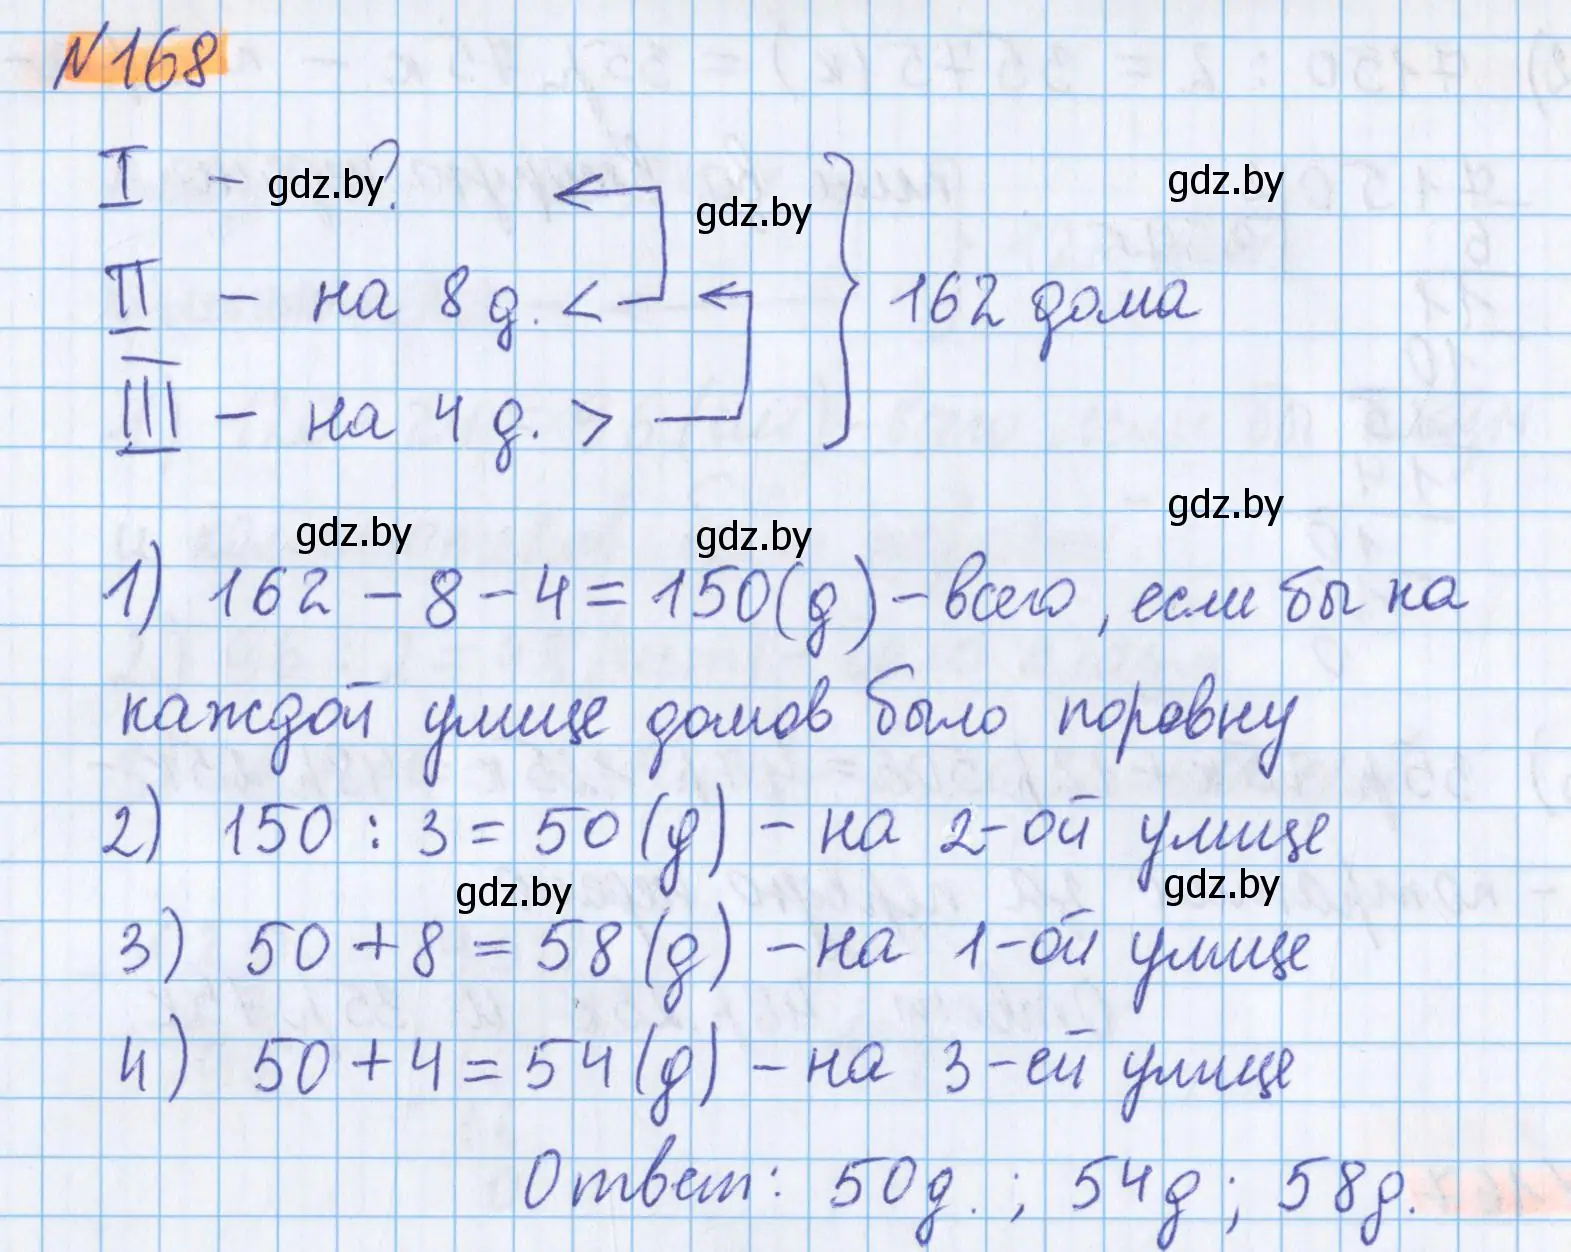 №168
I - ?
II - на 8 д. <
III - на 4 д. >
162 дома
1) 162 - 8 - 4 = 150 (д) - всего, если бы на
каждой улице домов было поровну
2) 150 : 3 = 50 (д) - на 2-ой улице
3) 50 + 8 = 58 (д) - на 1-ой улице
4) 50 + 4 = 54 (д) - на 3-ей улице
Ответ: 50 д. ; 54 д ; 58 д.
gdz.by
gdz.by
gdz.by
gdz.by
gdz.by
gdz.by
gdz.by
gdz.by